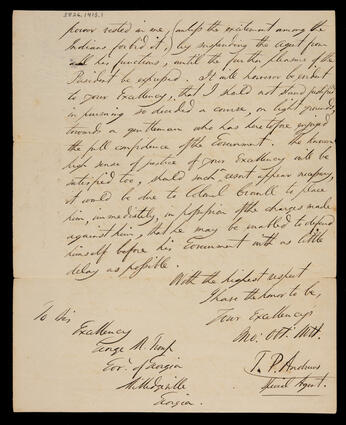 3826.1413.1
power vested in me, (unless the excitement among the
Indians forbid it,) by suspending the agent from
all his functions, until the further pleasure of the
President be expressed. It will however be evident
to your Excellency, that I should not stand justified
in pursuing so decided a course, on light grounds,
towards a gentleman who has heretofore enjoyed
the full confidence of the Government. The known
high sense of justice of your Excellency will be
satisfied too, should such resort appear necessary,
it would be due to Colonel Crowell, to place
him, immediately, in possession of the charges made
against him, that he may be enabled to defend
himself before his Government with as little
delay as possible.
With the highest respect
I have the honor to be,
Your Excellency's
Mo: Obt. Svt.
T. P. Andrews
Special Agent.
To His
Excellency
George M. Troup
Gov. of Georgia
Milledgeville
Georgia.